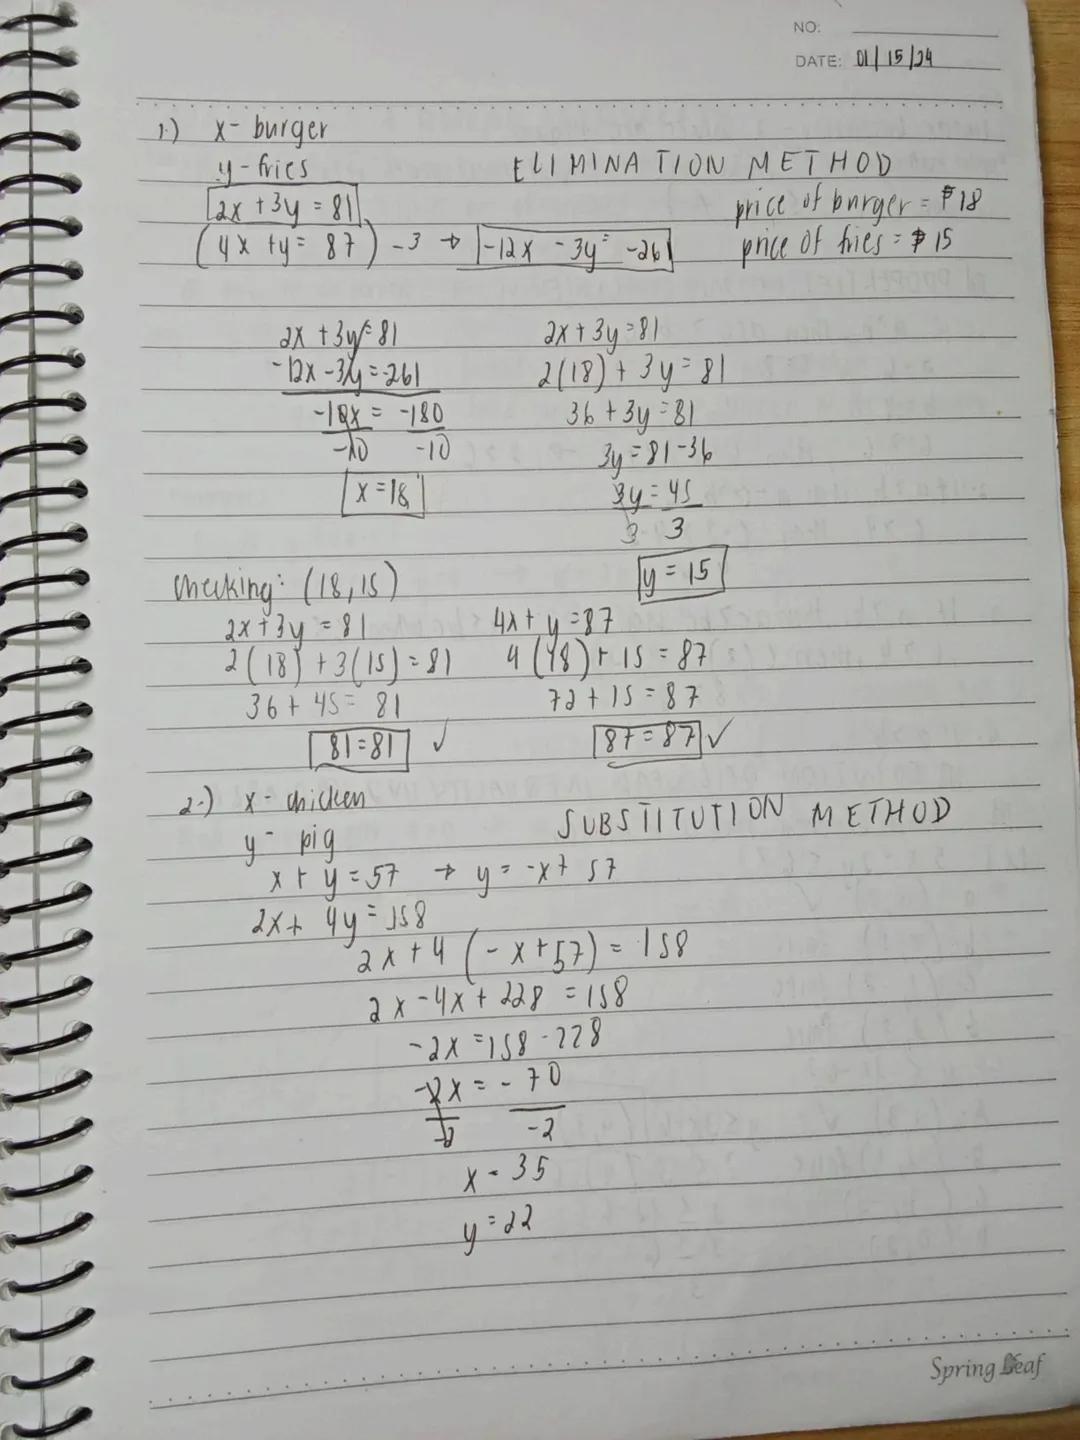 NO:
DATE: 01/15/24
1.) x - burger
y - fries
ELIMINATION METHOD
2x + 3y = 81
price of burger = ₱18
(4x + y = 87) -3 → -12x - 3y = -261
price of fries = ₱15
2x + 3y = 81
2x + 3y = 81
-12x - 3y = -261
2(18) + 3y = 81
-10x = -180
36 + 3y = 81
-10 -10
3y = 81 - 36
x = 18
3y = 45
3 3
y = 15
checking: (18, 15)
2x + 3y = 81
4x + y = 87
2(18) + 3(15) = 81
4(18) + 15 = 87
36 + 45 = 81
72 + 15 = 87
81 = 81 ✓
87 = 87 ✓
2.) x - chicken
y - pig
SUBSTITUTION METHOD
x + y = 57 → y = -x + 57
2x + 4y = 158
2x + 4(-x + 57) = 158
2x - 4x + 228 = 158
-2x = 158 - 228
-2x = -70
-2 -2
x = 35
y = 22
Spring Leaf